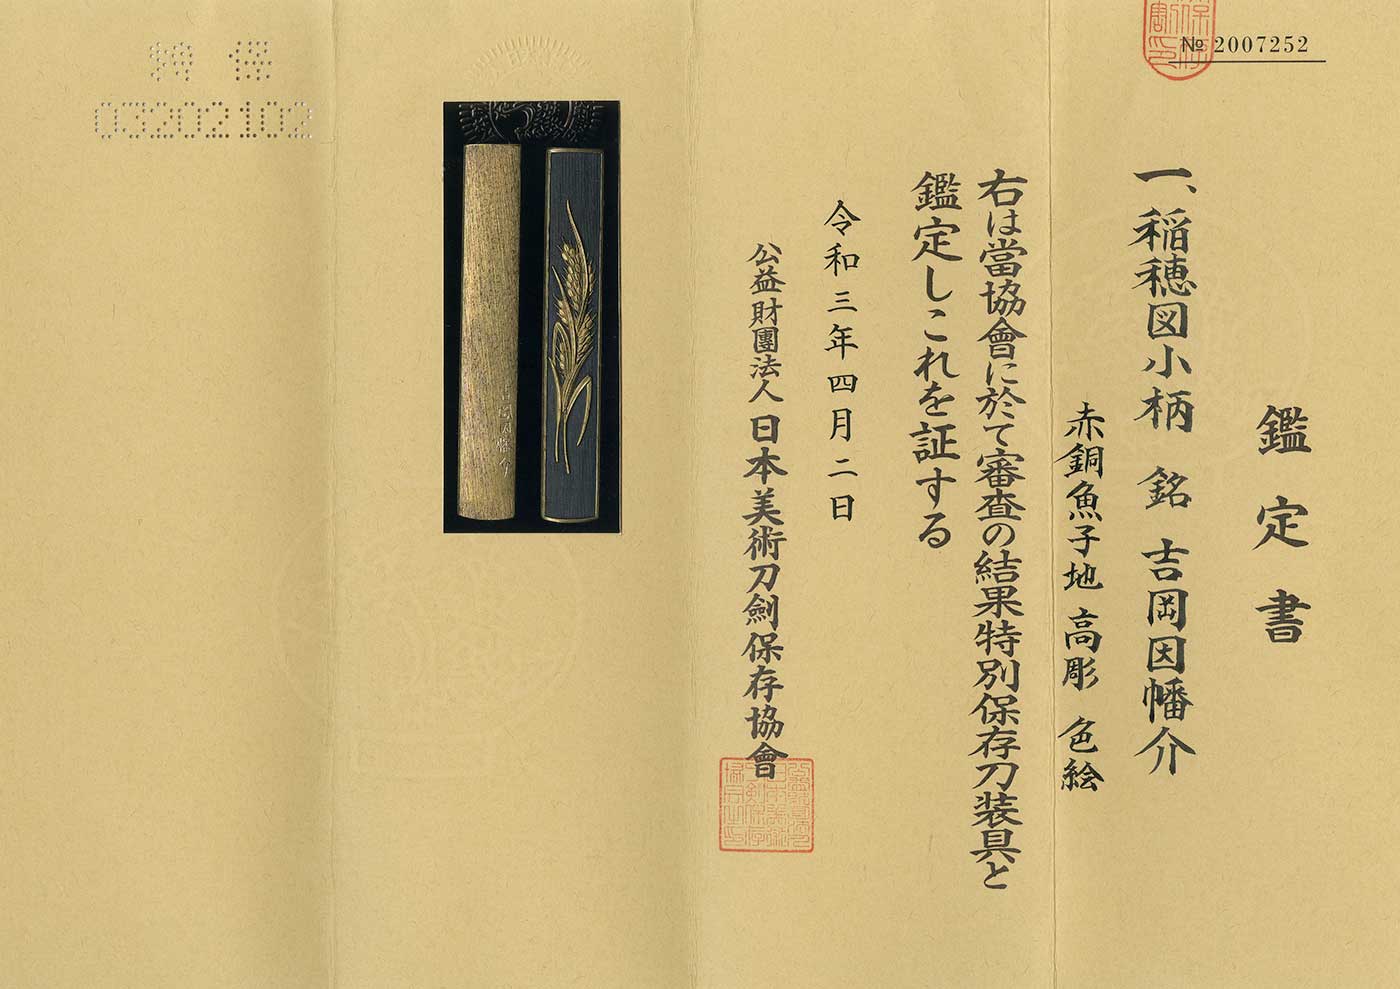 № 2007252
鑑定書
一、稲穂図小柄 銘 吉岡因幡介
赤銅魚子地 高彫 色絵
右は當協會に於て審査の結果特別保存刀装具と
鑑定しこれを証する
令和三年四月二日
公益財團法人 日本美術刀劍保存協會
特 保
03202102